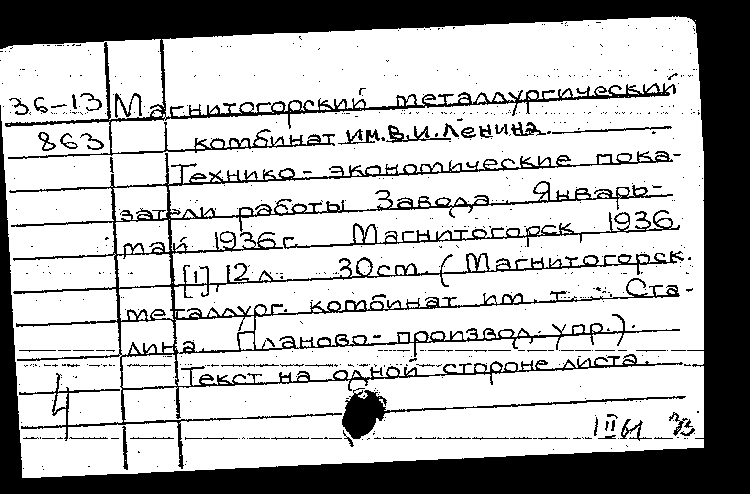 36-13 Магнитогорский металлургический
863 комбинат им. В.И. Ленина.
Технико-экономические пока-
затели работы Завода. Январь-
май 1936 г. Магнитогорск, 1936.
[1], 12 л. 30 ст. (Магнитогорск.
металлург. комбинат им. т. Ста-
лина. Планово-производ. упр.).
Текст на одной стороне листа.
4
III 61